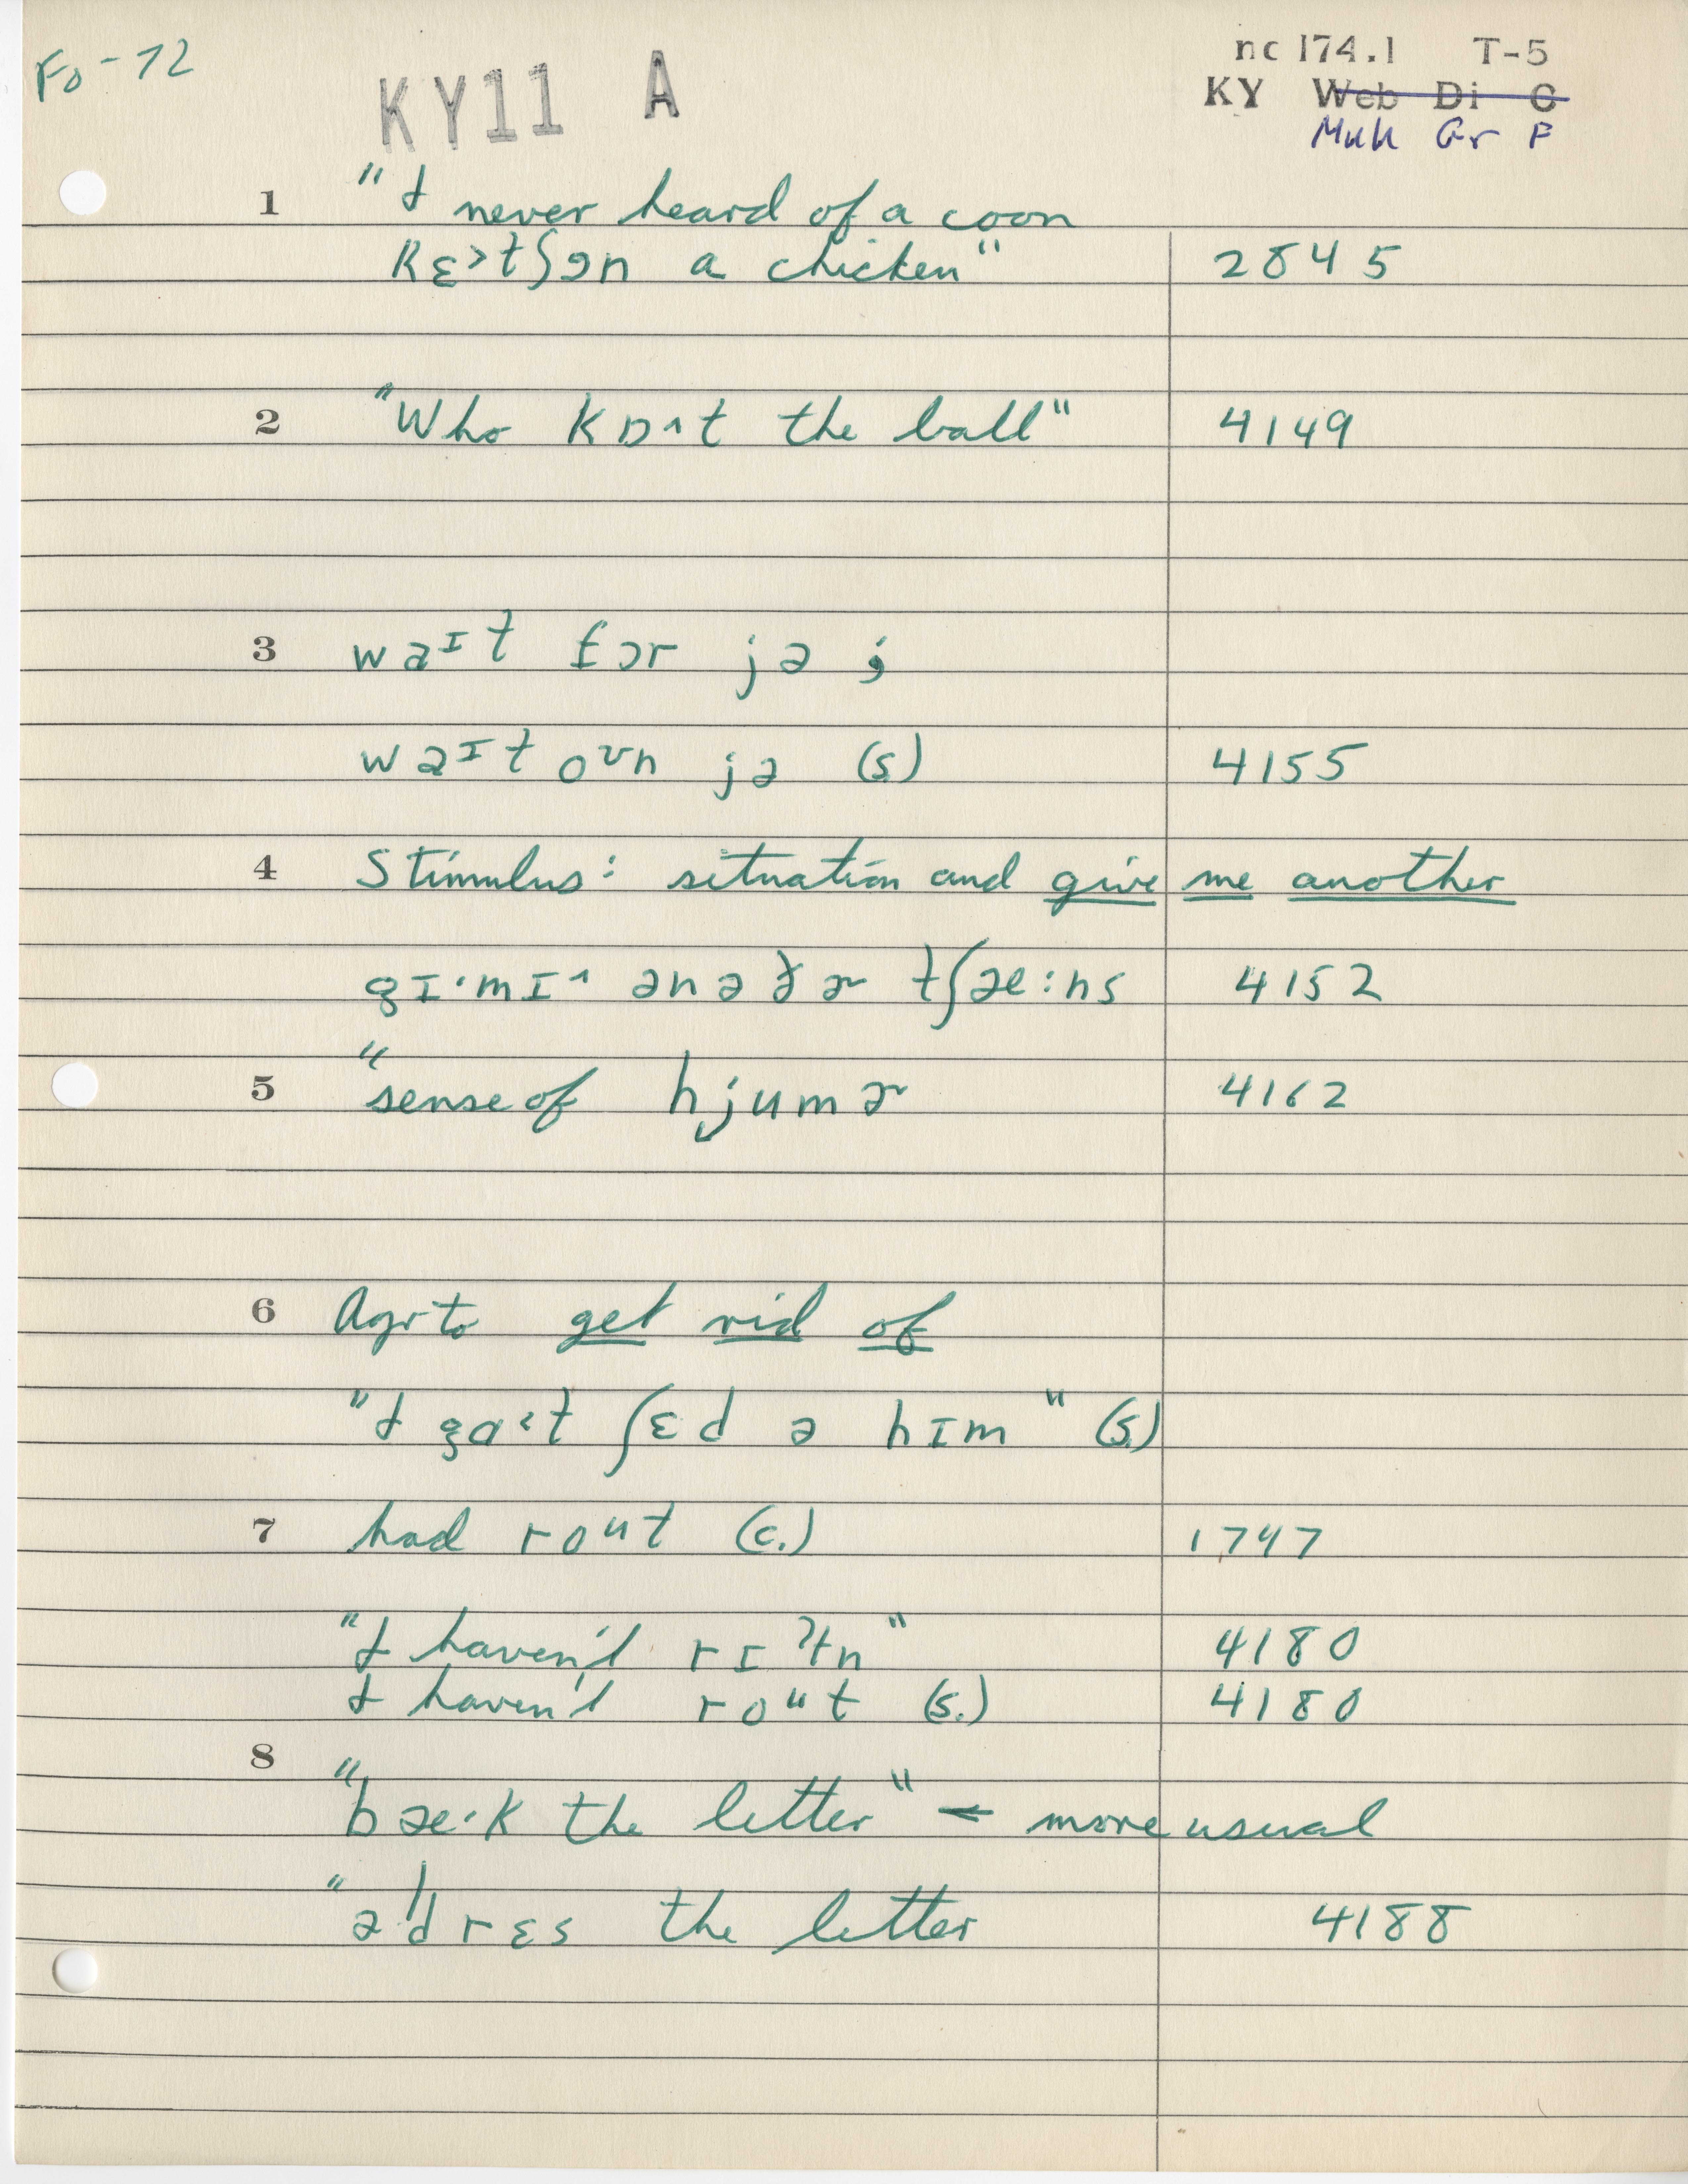 Fo-72
KY11 A
nc 174.1 T-5
KY Web Di C
Muh Gr F
1 "I never heard of a coon
kɛ˃tʃən a chicken" 2845
2 "Who kɒ˄t the ball" 4149
3 wəɪt fɔr jə ;
wəɪt oʊn jə (s) 4155
4 Stimulus: situation and give me another
gɪ·mɪ˄ ənəðɚ tʃæ:ns 4152
5 "sense of hjumɚ 4162
6 Agr to get rid of
"I gɑ˂t ʃɛd ə hɪm" (s.)
7 had roᵘt (c.) 1747
"I haven't rɪʔtn" 4180
I haven't roᵘt (s.) 4180
8 "bæ·k the letter" ← more usual
"əˈdrɛs the letter 4188